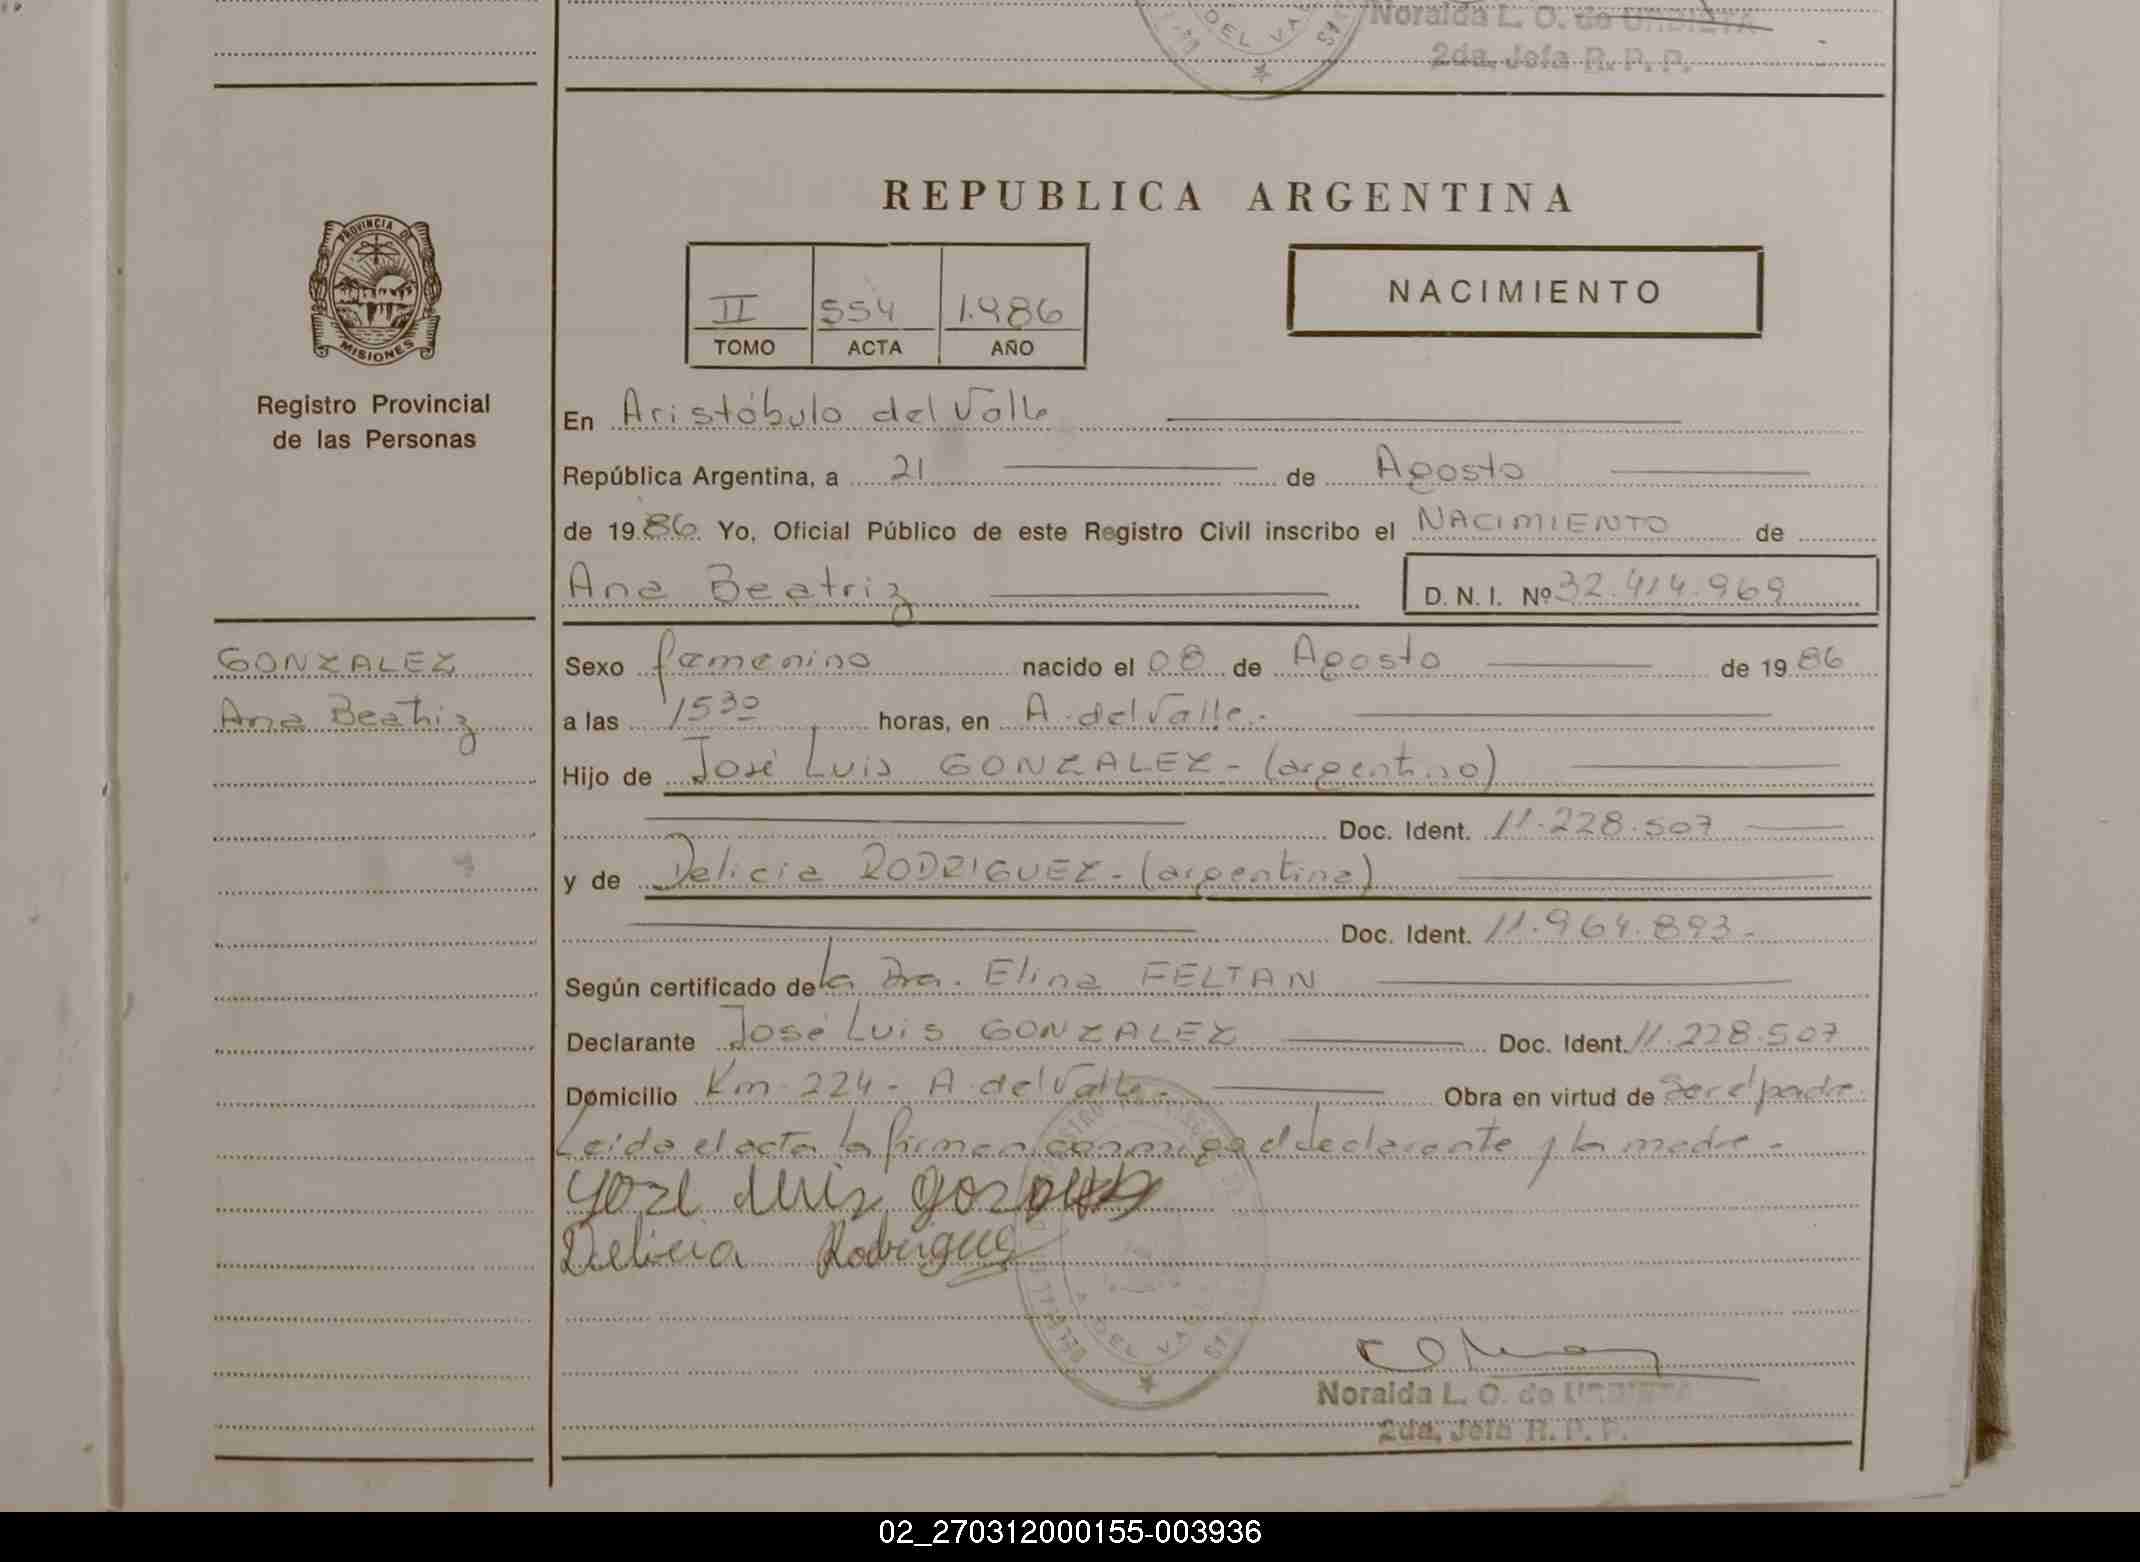 Noralda L. O. de URBIETA
2da. Jefa R. P. P.
DEL VA
REPUBLICA ARGENTINA
PROVINCIA DE
MISIONES
Registro Provincial
de las Personas
II 554 1.986
TOMO ACTA AÑO
NACIMIENTO
En Aristóbulo del Valle
República Argentina, a 21 de Agosto
de 1986. Yo, Oficial Público de este Registro Civil inscribo el NACIMIENTO de
Ana Beatriz D. N. I. Nº 32.414.969
GONZALEZ
Ana Beatriz
Sexo femenino nacido el 08 de Agosto de 1986
a las 1530 horas, en A. del Valle.-
Hijo de José Luis GONZALEZ - (argentino)
Doc. Ident. 11.228.507
y de Delicia RODRIGUEZ - (argentina)
Doc. Ident. 11.964.893.-
Según certificado de la Dra. Elina FELTAN
Declarante José Luis GONZALEZ Doc. Ident. 11.228.507
Domicilio Km. 224 - A. del Valle.- Obra en virtud de ser el padre.
Leida el acta la firman conmigo el declarante y la madre.-
Yozé Luis
Delicia Rodriguez
DEL VA
Noralda L. O. de URBIETA
2da. Jefa R. P. P.
02_270312000155-003936